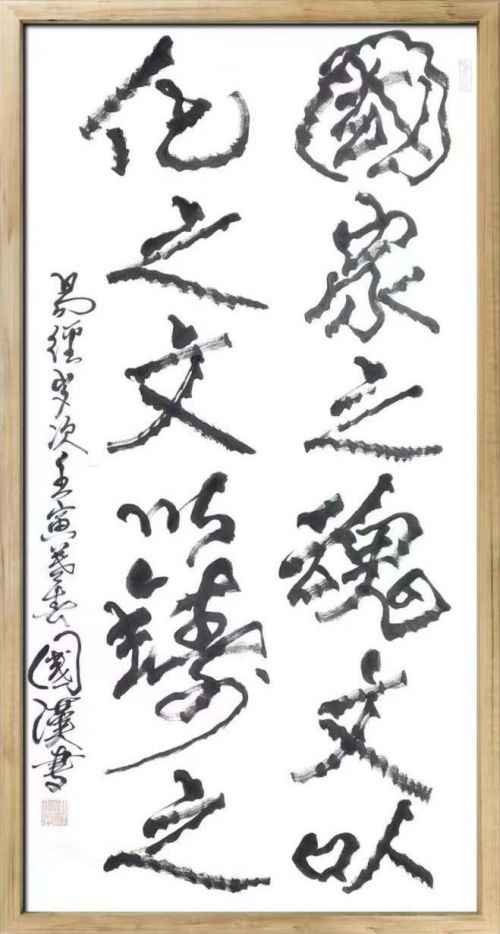 國家之魂文以
化之文以鑄之
易經歲次壬寅春國漢書